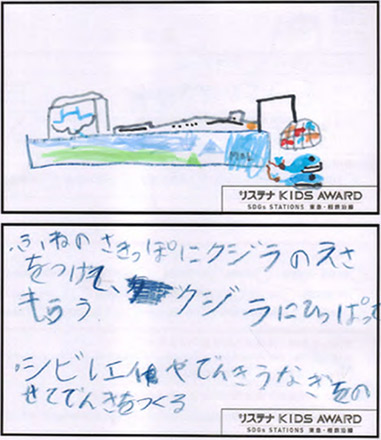 リステナ KIDS AWARD
SDGs STATIONS 東急・相鉄沿線
・ふねの さきっぽにクジラのえさ
をつけて、 クジラにひっぱって
もらう
・シビレエイやでんきうなぎをの
せてでんきをつくる
リステナ KIDS AWARD
SDGs STATIONS 東急・相鉄沿線